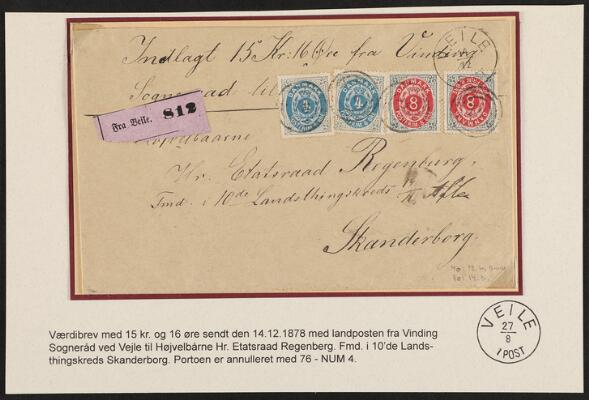 Indlagt 15 Kr: 16 Øre fra Vinding
Sogneraad til
VEILE
DANMARK
4
DANMARK
4
DANMARK
8
DANMARK
8
Fra Veile. 812
Højvelbaarne
Hr. Etatsraad Regenburg,
Fmd. i 10de Landsthingskreds
Skanderborg.
Værdibrev med 15 kr. og 16 øre sendt den 14.12.1878 med landposten fra Vinding
Sogneråd ved Vejle til Højvelbårne Hr. Etatsraad Regenberg. Fmd. i 10'de Lands-
thingskreds Skanderborg. Portoen er annulleret med 76 - NUM 4.
VEILE
27
8
1 POST